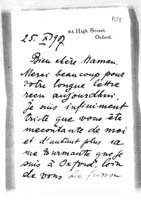 83, High Street,
Oxford.
25. X 97
Bien chère Maman.
Merci beaucoup pour
votre longue lettre
reçu aujourd'hui.
Je suis infiniment
triste que vous ête
mecontante de moi
et d'autant plus
tourmante que je
suis à Oxford, loin
de vous